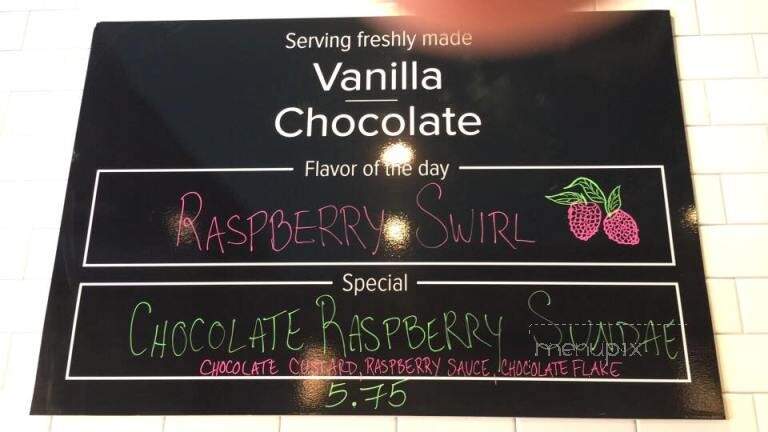 Serving freshly made
Vanilla
Chocolate
Flavor of the day
RASPBERRY SWIRL
Special
CHOCOLATE RASPBERRY SUNDAE
menupix
CHOCOLATE CUSTARD, RASPBERRY SAUCE, CHOCOLATE FLAKE
5.75